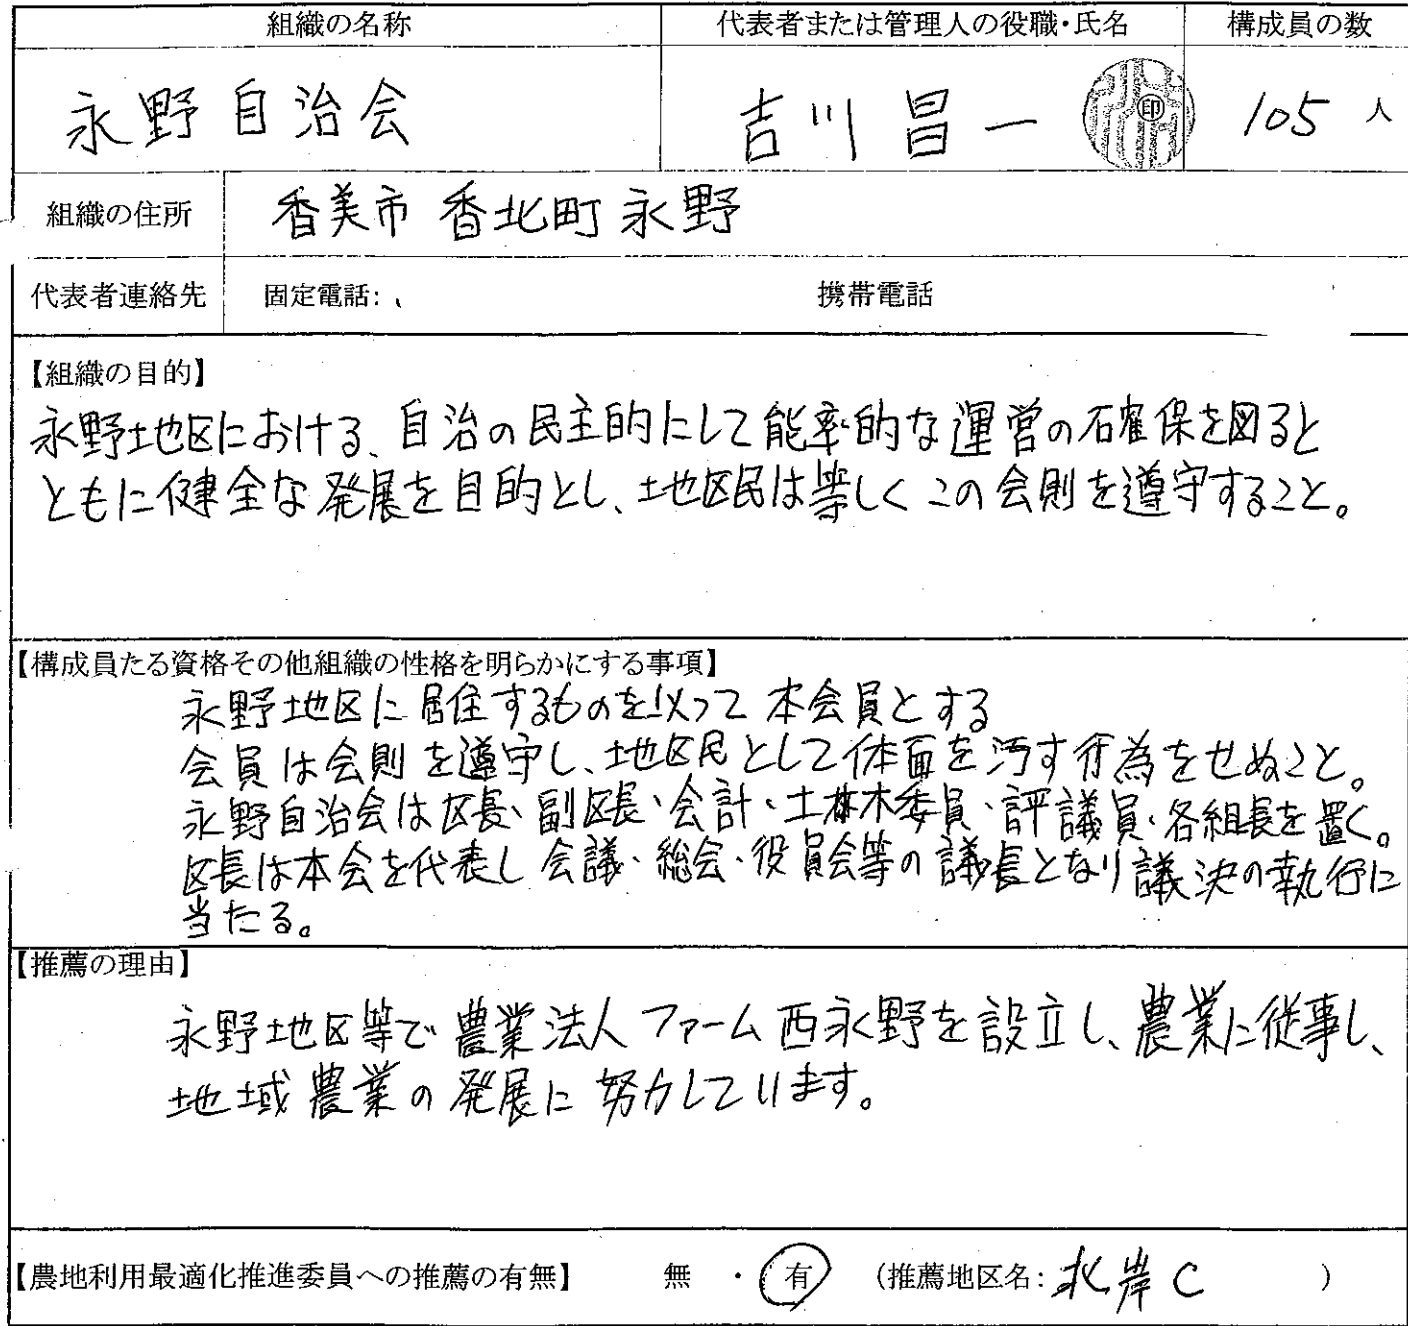 組織の名称 代表者または管理人の役職・氏名 構成員の数
永野自治会 吉川昌一 印 105 人
組織の住所 香美市香北町永野
代表者連絡先 固定電話: 携帯電話
【組織の目的】
永野地区における、自治の民主的にして能率的な運営の確保を図ると
ともに健全な発展を目的とし、地区民は等しくこの会則を遵守すること。
【構成員たる資格その他組織の性格を明らかにする事項】
永野地区に居住するものを以って本会員とする
会員は会則を遵守し、地区民として体面を汚す行為をせぬこと。
永野自治会は区長・副区長・会計・土木委員・評議員・各組長を置く。
区長は本会を代表し会議・総会・役員会等の議長となり議決の執行に
当たる。
【推薦の理由】
永野地区等で農業法人ファーム西永野を設立し、農業に従事し、
地域農業の発展に努力しています。
【農地利用最適化推進委員への推薦の有無】 無 ・ 有 (推薦地区名: 北岸C )